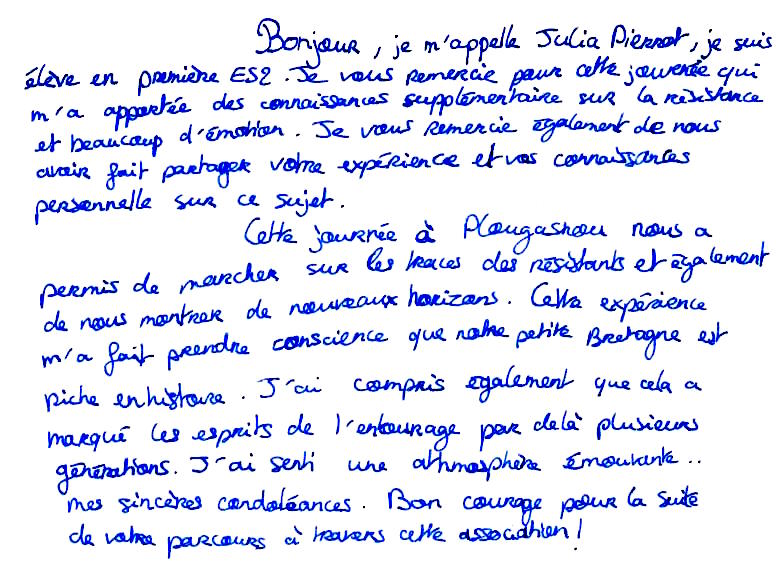 Bonjour, je m'appelle Julia Pierrot, je suis
élève en première ES2. Je vous remercie pour cette journée qui
m'a apportée des connaissances supplémentaire sur la résistance
et beaucoup d'émotion. Je vous remercie également de nous
avoir fait partager votre expérience et vos connaissances
personnelle sur ce sujet.
Cette journée à Plougasnou nous a
permis de marcher sur les traces des résistants et également
de nous montrer de nouveaux horizons. Cette expérience
m'a fait prendre conscience que notre petite Bretagne est
riche en histoire. J'ai compris egalement que cela a
marqué les esprits de l'entourage par delà plusieurs
générations. J'ai senti une athmosphère émouvante..
mes sincères condoléances. Bon courage pour la suite
de votre parcours à travers cette association!